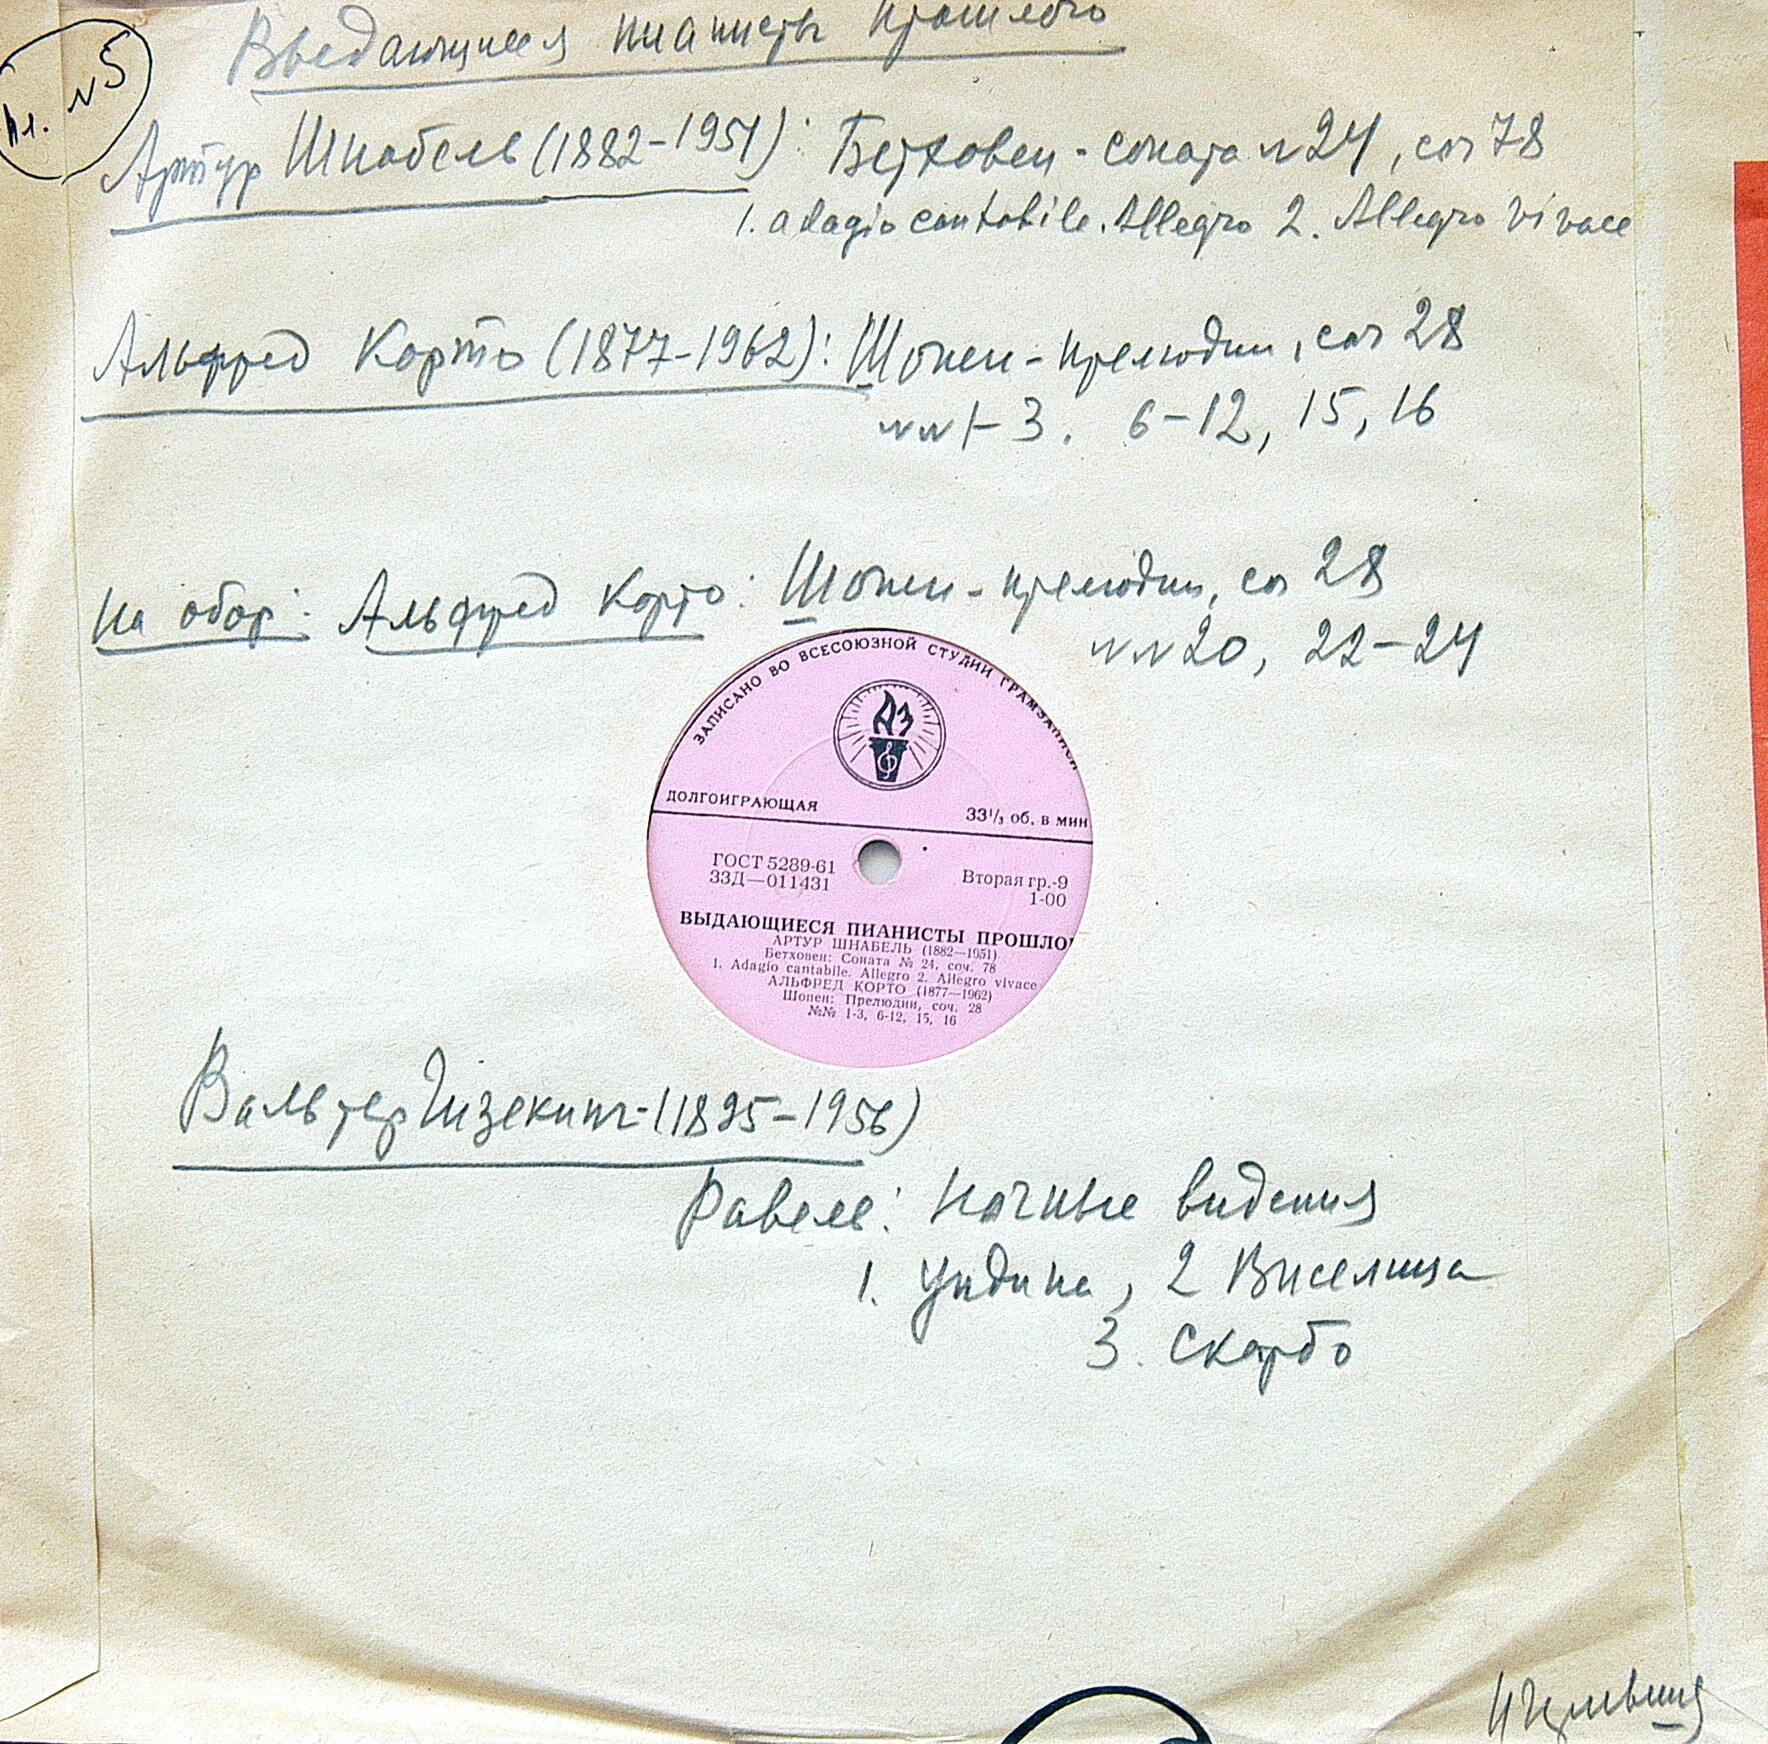 Выдающиеся пианисты прошлого
Пл. №5
Артур Шнабель (1882-1951): Бетховен - соната №24, соч 78
1. Adagio cantabile. Allegro 2. Allegro vivace
Альфред Корто (1877-1962): Шопен - прелюдии, соч 28
№№ 1-3. 6-12, 15, 16
На обор: Альфред Корто: Шопен - прелюдии, соч 28
№№ 20, 22-24
ЗАПИСАНО ВО ВСЕСОЮЗНОЙ СТУДИИ ГРАМЗАПИСИ
ДЗ
ДОЛГОИГРАЮЩАЯ 33⅓ об. в мин.
ГОСТ 5289-61 Вторая гр.-9
33Д—011431 1-00
ВЫДАЮЩИЕСЯ ПИАНИСТЫ ПРОШЛО
АРТУР ШНАБЕЛЬ (1882—1951)
Бетховен: Соната № 24, соч. 78
1. Adagio cantabile. Allegro 2. Allegro vivace
АЛЬФРЕД КОРТО (1877—1962)
Шопен: Прелюдии, соч. 28
№№ 1-3, 6-12, 15, 16
Вальтер Гизекинг (1895-1956)
Равель: Ночные видения
1. Ундина, 2 Виселица
3. Скарбо